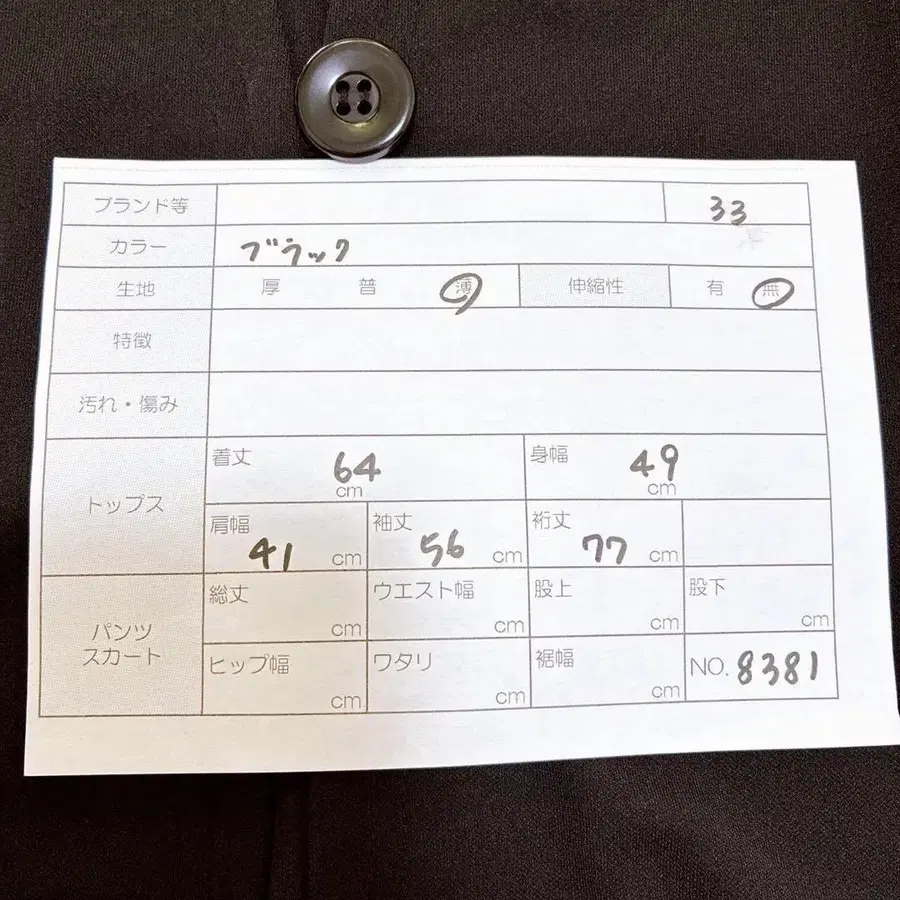 ブランド等 33
カラー ブラック
生地 厚 普 薄 伸縮性 有 無
特徴
汚れ・傷み
トップス
着丈 64 cm 身幅 49 cm
肩幅 41 cm 袖丈 56 cm 裄丈 77 cm
パンツ
スカート
総丈 cm ウエスト幅 cm 股上 cm 股下 cm
ヒップ幅 cm ワタリ cm 裾幅 cm NO. 8381